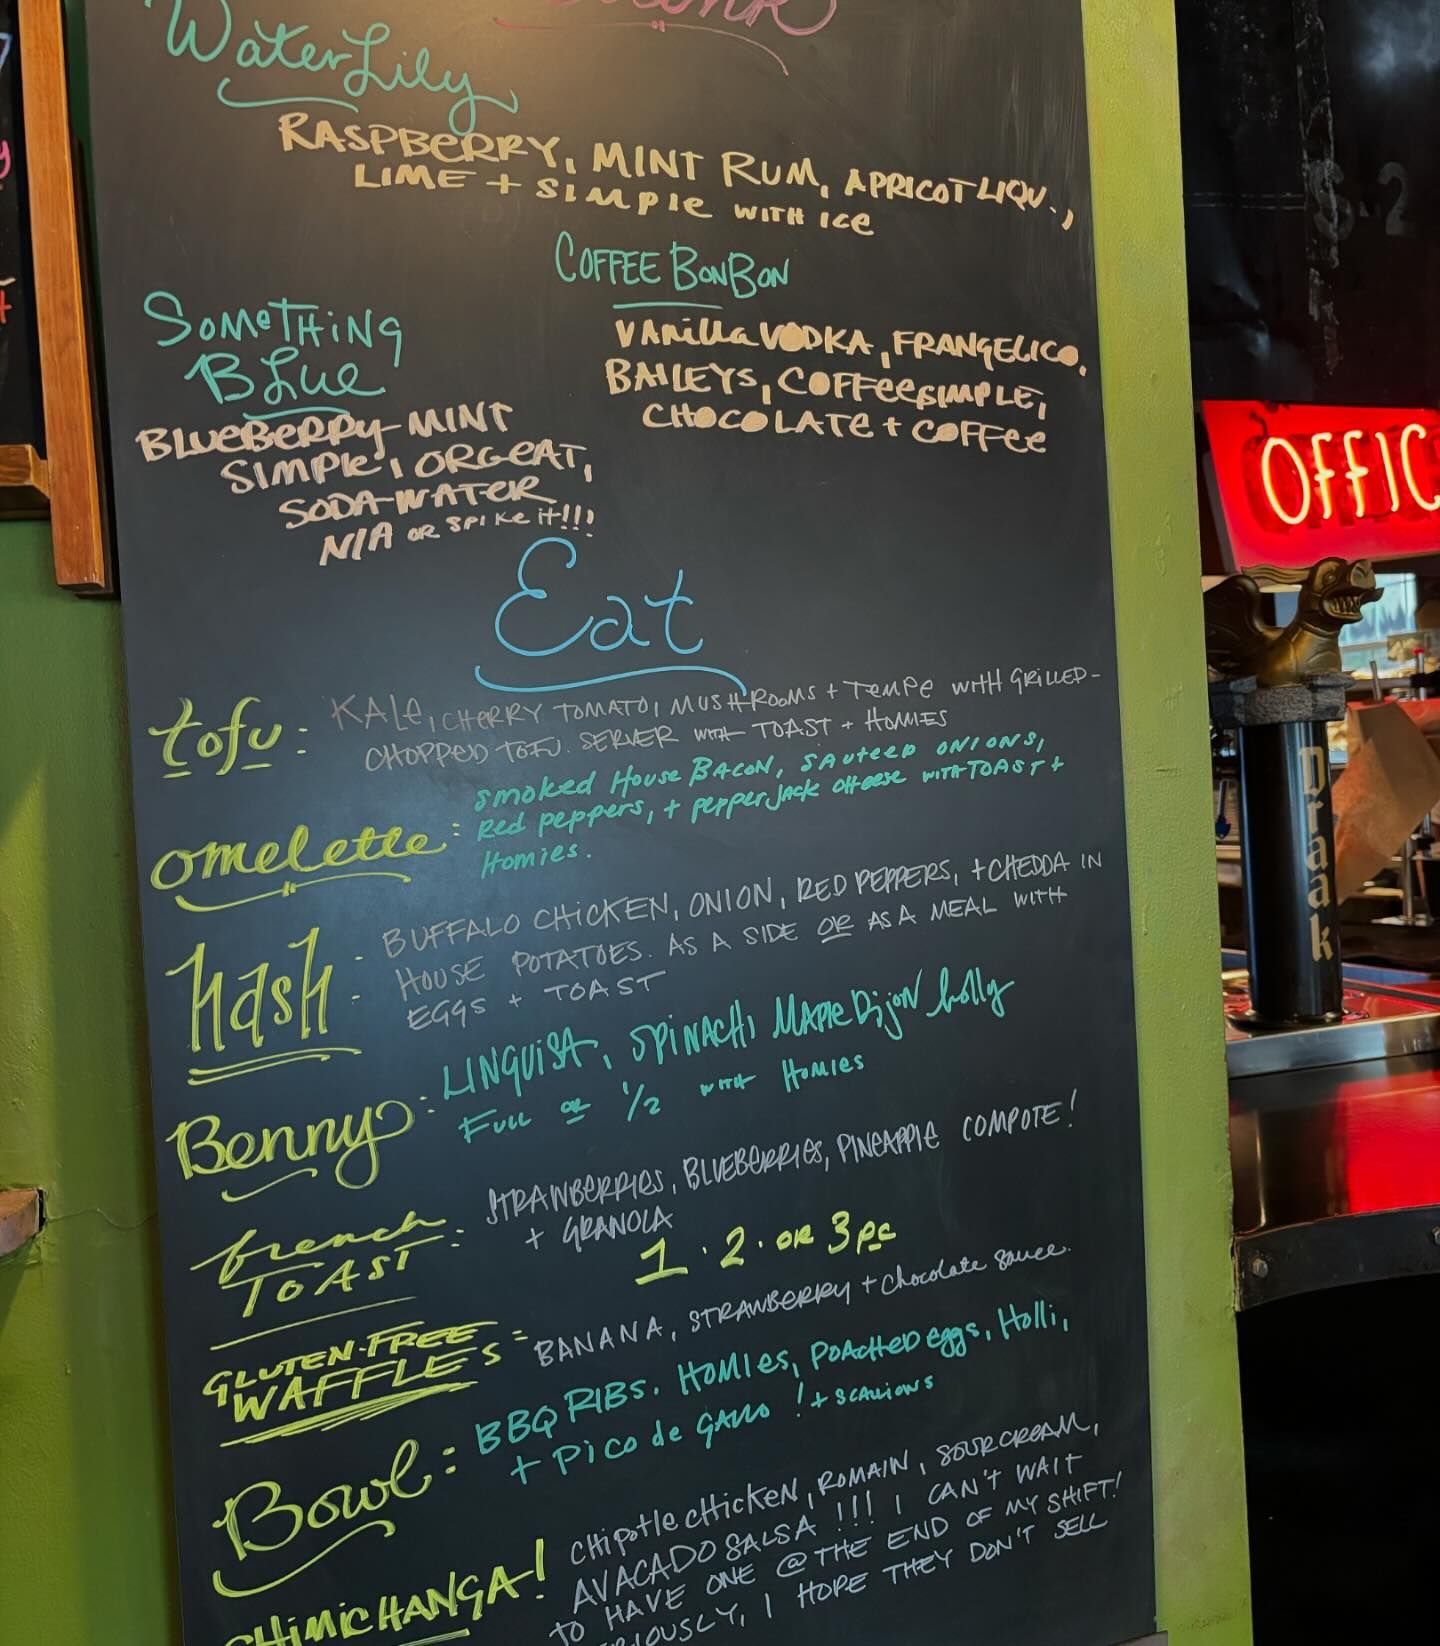 WaterLily
RASPBERRY, MINT RUM, APRICOT LIQU.,
LIME + SIMPLE WITH ICE
COFFEE BONBON
VANILLA VODKA, FRANGELICO,
BAILEYS, COFFEE SIMPLE,
CHOCOLATE + COFFEE
SOMETHING
BLUE
BLUEBERRY-MINT
SIMPLE, ORGEAT,
SODA WATER
N/A OR SPIKE IT!!!
Eat
tofu: KALE, CHERRY TOMATO, MUSHROOMS + TEMPE WITH GRILLED-
CHOPPED TOFU. SERVER WITH TOAST + HOMIES
omelette: SMOKED HOUSE BACON, SAUTEED ONIONS,
RED PEPPERS, + PEPPERJACK CHEESE WITH TOAST +
HOMIES.
Hash: BUFFALO CHICKEN, ONION, RED PEPPERS, + CHEDDA IN
HOUSE POTATOES. AS A SIDE OR AS A MEAL WITH
EGGS + TOAST
Benny: LINGUISA, SPINACH, MAPLE DIJON holly
FULL OR 1/2 WITH HOMIES
french
TOAST: STRAWBERRIES, BLUEBERRIES, PINEAPPLE COMPOTE!
+ GRANOLA
1 · 2 · OR 3 PC
GLUTEN-FREE
WAFFLES: BANANA, STRAWBERRY + chocolate sauce.
Bowl: BBQ RIBS. HOMIES, POACHED eggs, Holli,
+ PICO de GALLO! + SCALLIONS
CHIMICHANGA! CHIPOTLE CHICKEN, ROMAIN, SOUR CREAM,
AVACADO SALSA!!! I CAN'T WAIT
TO HAVE ONE @ THE END OF MY SHIFT!
SERIOUSLY, I HOPE THEY DON'T SELL
OFFIC
Draak
S-2